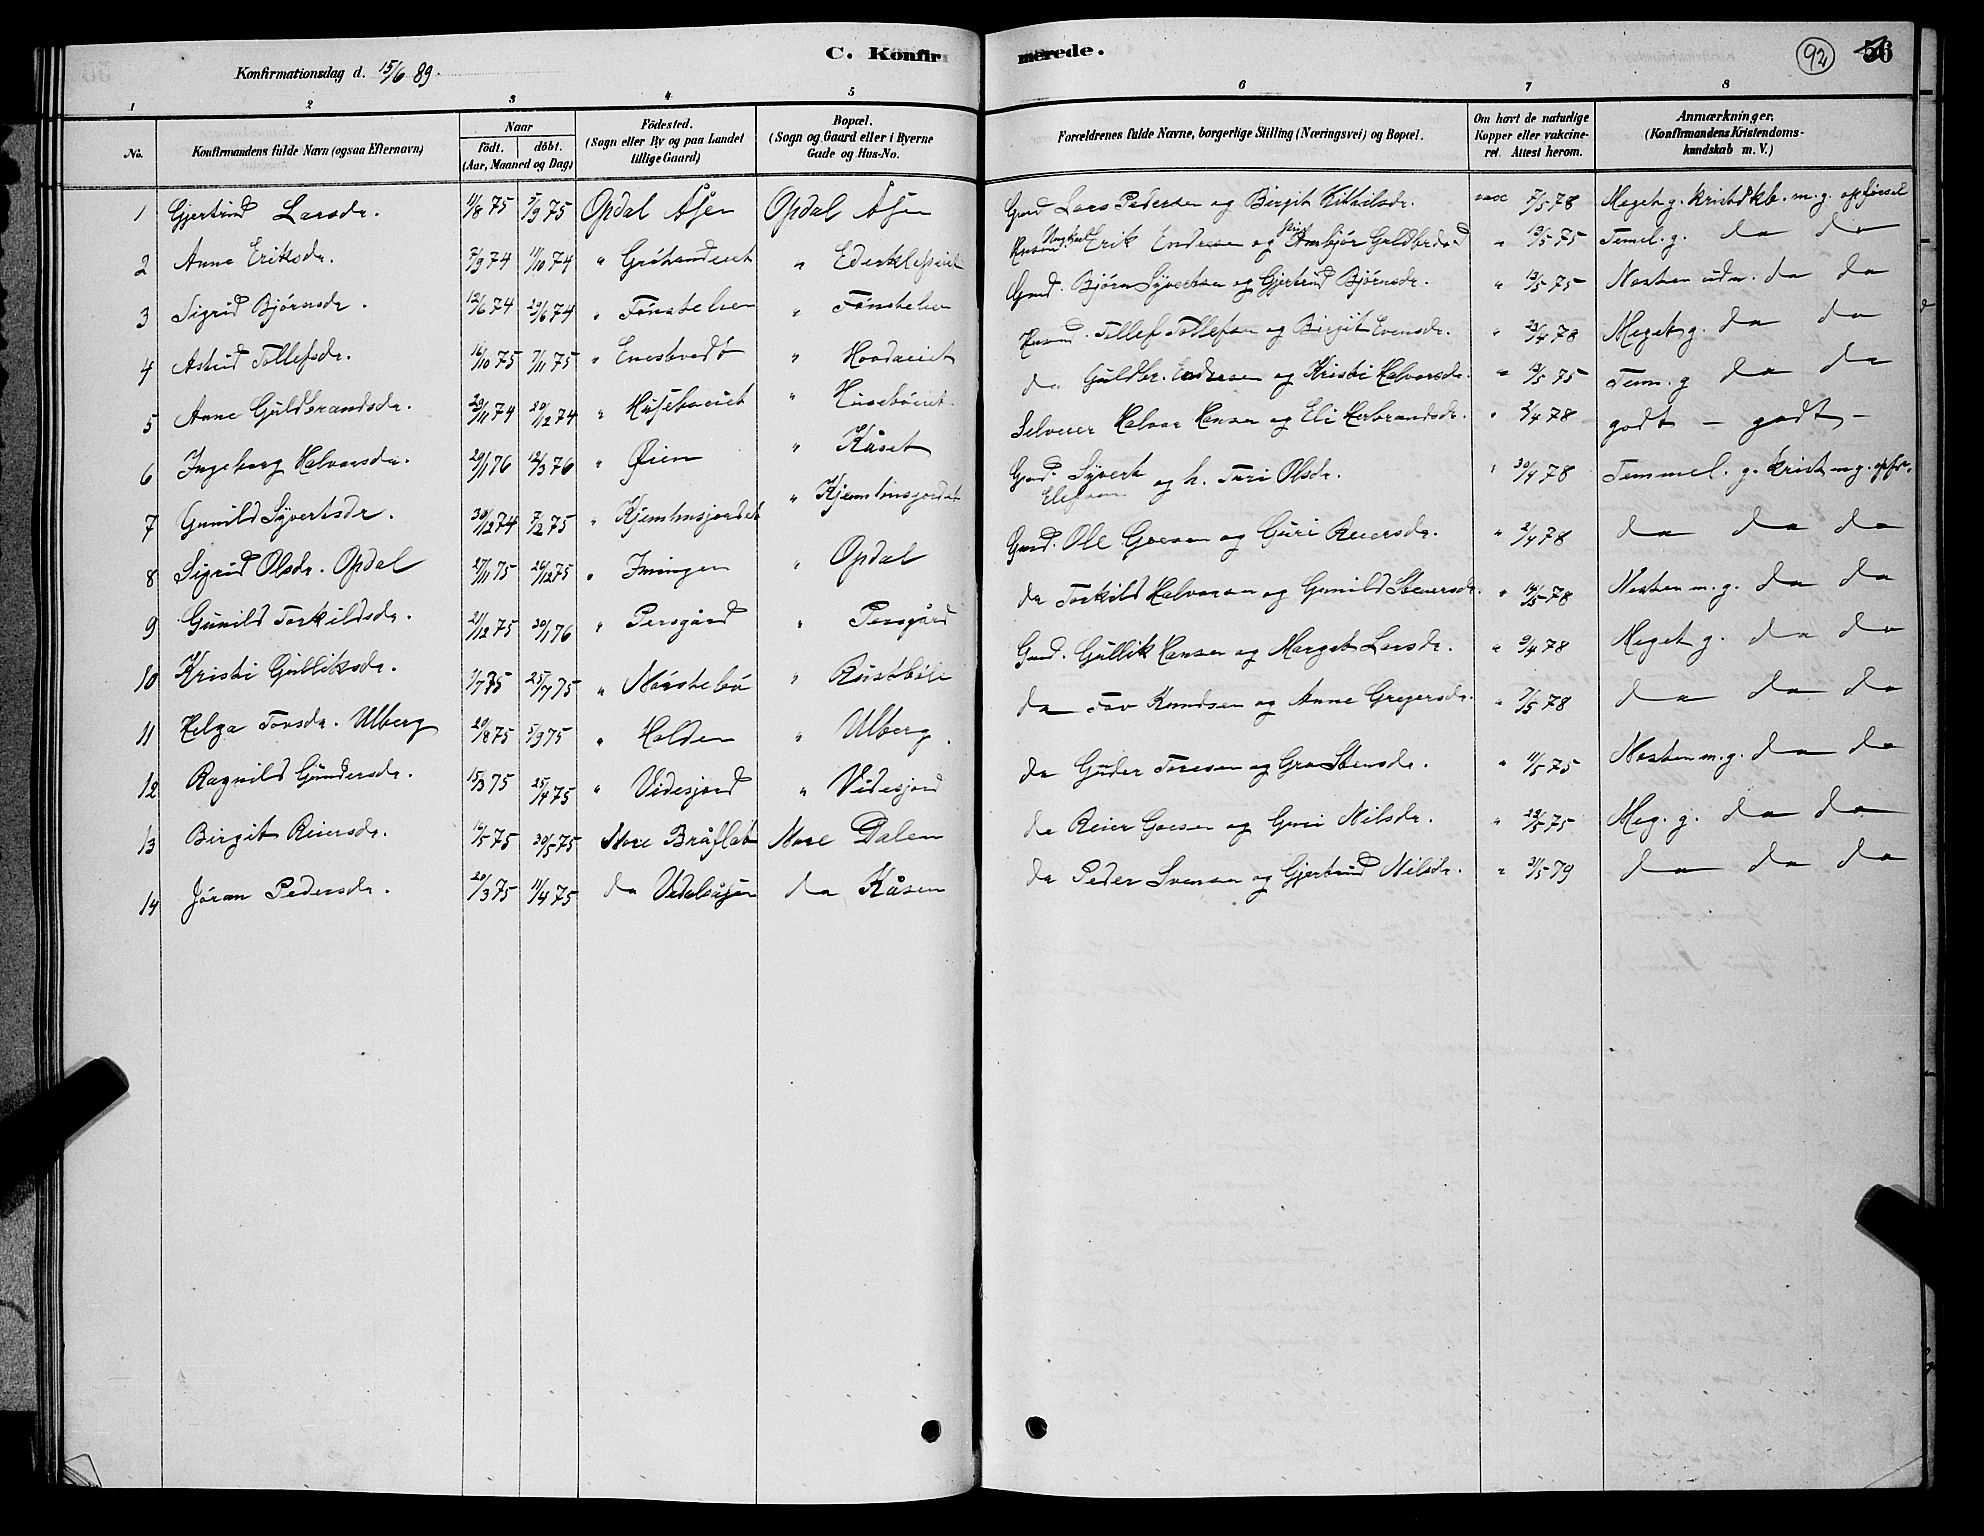 C. Konfirmerede.
92
56
Konfirmationsdag d. 15/6 89.
1 2 3 4 5 6 7 8
No.
Konfirmandens fulde Navn (ogsaa Efternavn)
Naar
födt. döbt.
(Aar, Maaned og Dag)
Födested.
(Sogn eller By og paa Landet
tillige Gaard)
Bopæl.
(Sogn og Gaard eller i Byerne
Gade og Hus-No.
Forældrenes fulde Navne, borgerlige Stilling (Næringsvei) og Bopæl.
Om havt de naturlige
Kopper eller vakcine-
ret. Attest herom.
Anmærkninger.
(Konfirmandens Kristendoms-
kundskab m. V.)
1 Gjertrud Larsdr. 11/8 75 5/9 75 Opdal Åsen Opdal Åsen Gmd Lars Pedersen og Birgit Kittilsdr. vacc 7/5 78 Meget g. kristdkb. m. g. opförsel
2 Anne Eriksdr. 7/9 74 11/10 74 " " Erik Endresen og Ambjör Guldbrdsd " 13/5 75 Temel. g. do do
3 Sigrid Björnsdr. 12/6 74 29/6 74 " Fönstelien " Fönstelien Gmd. Björn Syvertsen og Gjertrud Björnsdr. " 13/5 75 Nesten udm. do do
4 Astrid Tollefsdr. 16/10 75 7/11 75 " " Husmd. Tollef Tollefsen og Birgit Evensdr. " 23/4 78 Meget g. do do
5 Anne Guldbrandsdr. 29/11 74 20/12 74 " Huseboeiet " Huseböeiet do Guldbr. Endresen og Kristi Halvorsdr. " 13/5 75 Tem. g do do
6 Ingeborg Halvorsdr. 29/1 76 12/3 76 " Øien " Kåset Selveier Halvor Hansen og Eli Herbrandsdr. " 2/4 78 godt – godt –
7 Gunild Syvertsdr. 30/12 74 7/2 75 " Kjemhusjordet " Kjemhusjordet Gmd. Syvert Elefsen og h. Turi Olsdr. " 30/4 78 Temmel. g. krist m g. opför.
8 Sigrid Olsdr. Opdal 27/11 75 26/12 75 " Imingen " Opdal Gmd. Ole Goesen og Guri Reiersdr. " 2/4 78 do do do
9 Gunild Torkildsdr. 21/12 75 30/1 76 " Persgård " Persgård do Torkild Halvorsen og Gunild Steinersdr. " 14/5 78 Nesten m. g. do do
10 Kristi Gulliksdr. 1/7 75 25/7 75 " Nörstebö " Gmd. Gullik Hansen og Marget Larsdr. " 9/4 78 Meget g. do do
11 Helga Tovsdr. Ulberg 20/8 75 5/9 75 " Holden " Ulberg do Tov Knudsen og Anne Gregersdr. " 7/5 78 do do do
12 Ragnild Gundersdr. 15/3 75 25/4 75 " Videsjord " Videsjord do Guder Toresen og Gro Stensdr. " 11/5 75 Nesten m. g. do do
13 Birgit Reiersdr. 14/5 75 30/5 75 Nore Bråflat Nore Dalen do Reier Goesen og Guri Nilsdr. " 29/5 75 Meg. g. do do
14 Jöran Pedersdr. 20/3 75 11/4 75 do do Kåsen do Peder Svensen og Gjertrud Nilsdr. " 31/5 79 do do do